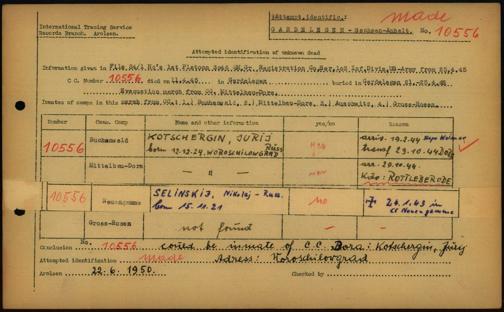 International Tracing Service
Records Branch. Arolsen.
(Attempt.identific.: made
GARDELEGEN - Sachsen-Anhalt. No. 10556
Attempted identification of unknown dead
Information given in
C.C. Number 10556 died on 11.4.45 in Gardelegen buried in Gardelegen
Evacuation march from CC Mittelbau-Dora.
Inmates of camps in this march from CC. 1.) Buchenwald, 2.) Mittelbau-Dora, 3.) Auschwitz, 4.) Gross-Rosen.
Number Camp Name and other information yes/no Reason
10556 Buchenwald KOTSCHERGIN, JURIJ Russ
born 12.12.24, WOROSCHILOWGRAD
transf 29.10.44 Dora
Mittelbau-Dora — " — arr. 29.10.44
Kdo: ROTTLEBERODE
10556 Neuengamme SELINSKIJ, Nikolaj - Russ. no
born 15.11.21
24.1.43 in
Kl Neuengamme
Gross-Rosen not found
Conclusion No. 10556 could be inmate of C.C. Dora: Kotschergin, Jurij
Attempted identification made Adress: Woroschilovgrad
Arolsen 22.6.1950. Checked by